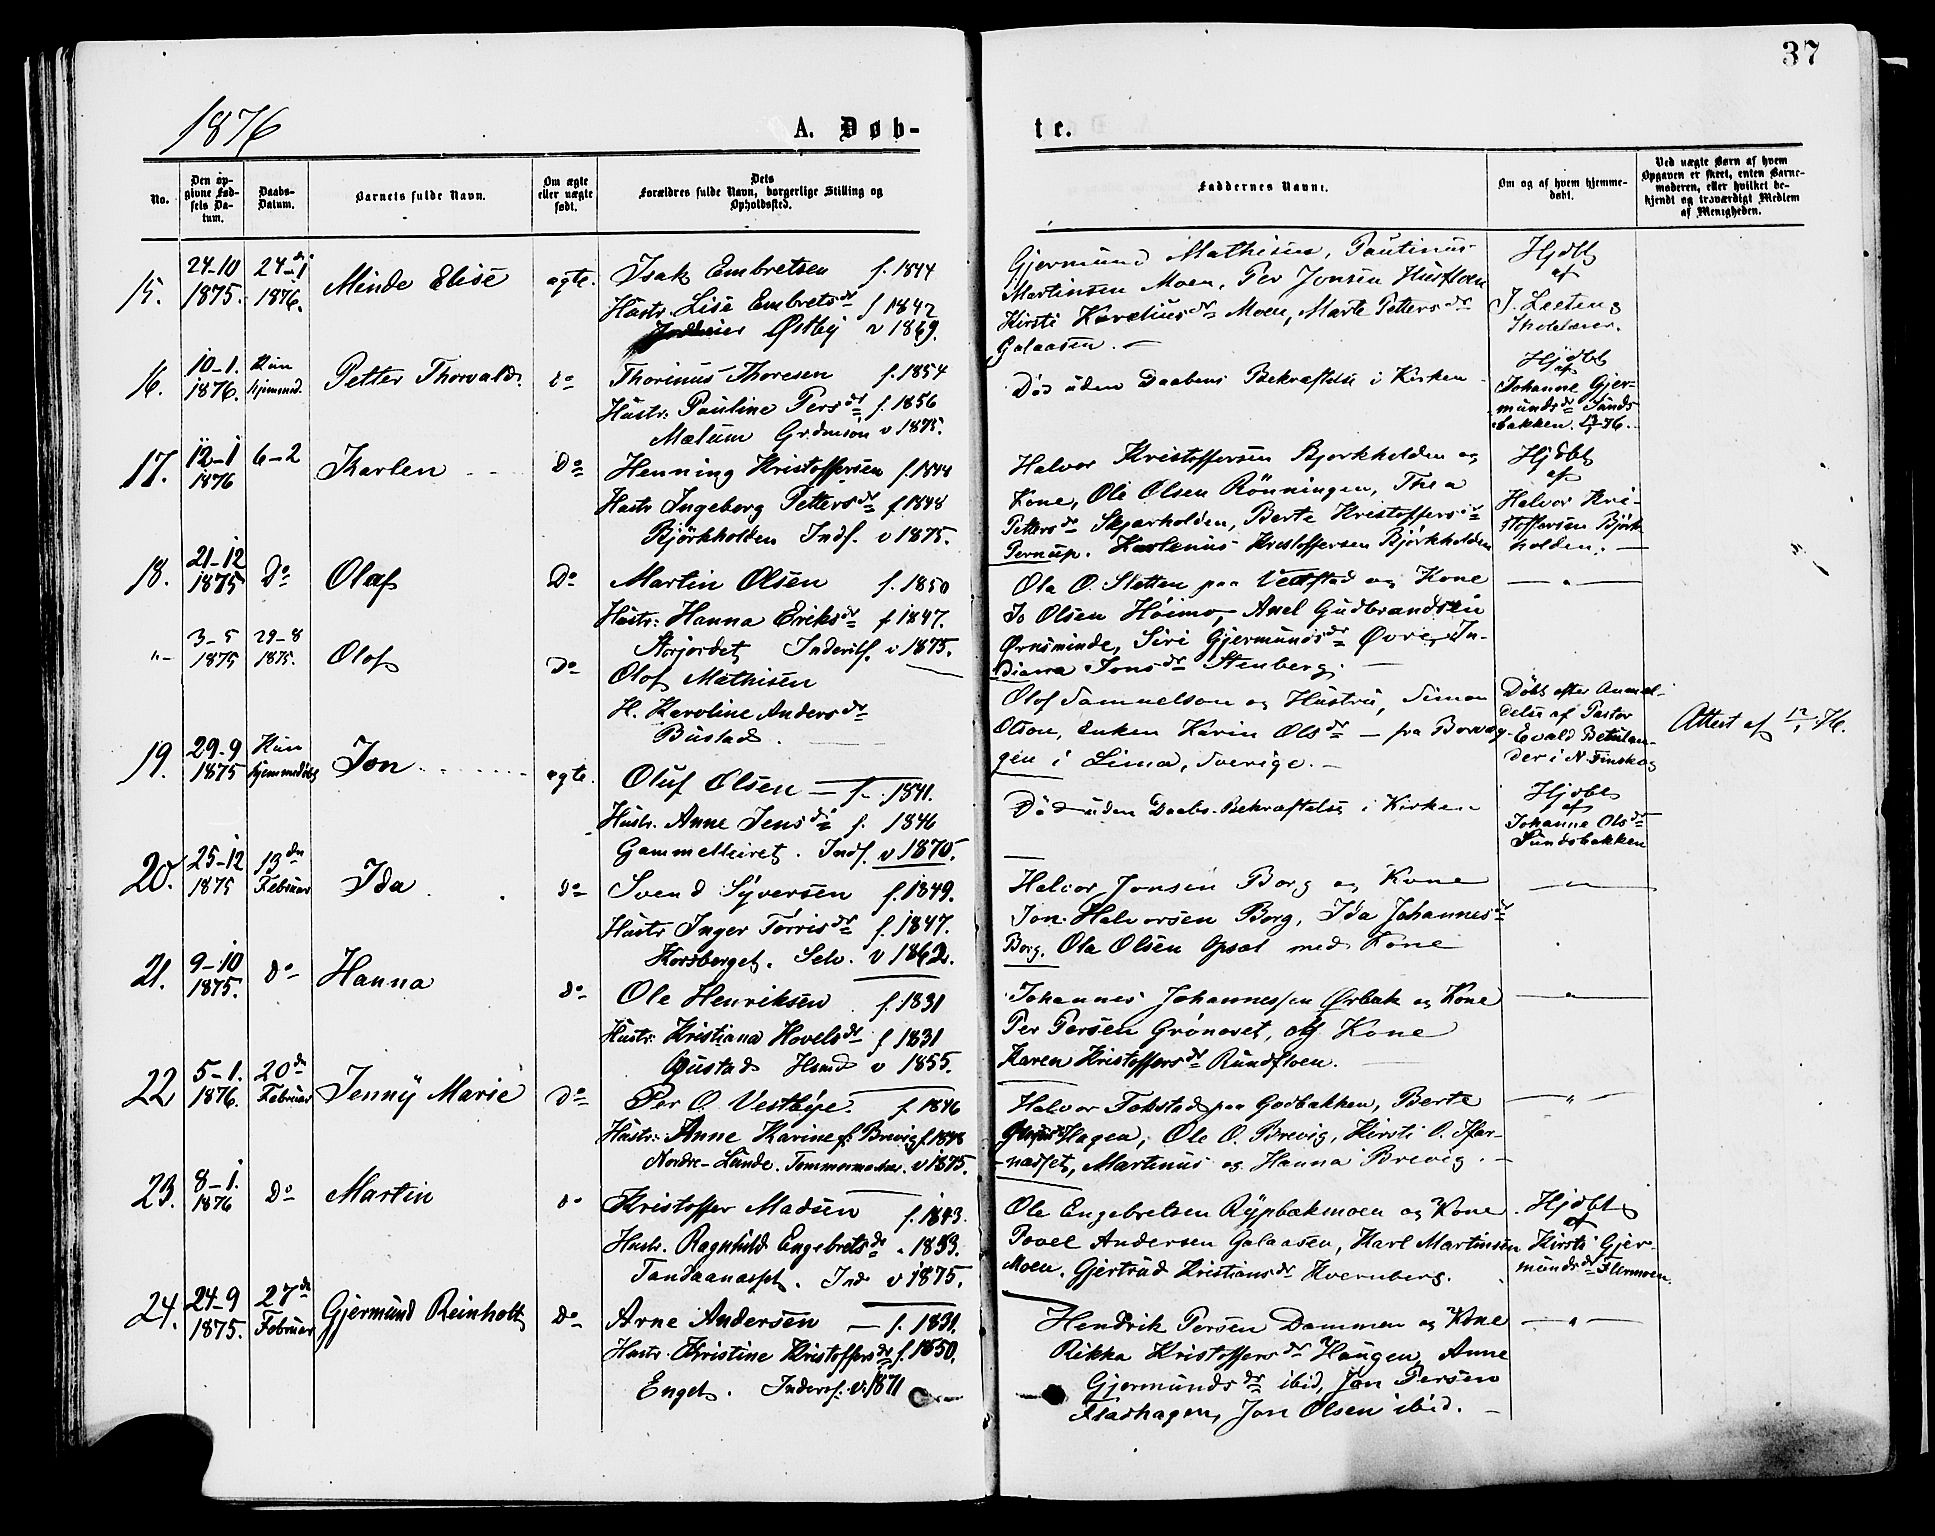 37
1876
A. Døb-
te.
No.
Den op-
givne Fød-
sels Da-
tum.
Daabs-
Datum.
Barnets fulde Navn.
Om ægte
eller uægte
født.
Dets
Forældres fulde Navn, borgerlige Stilling og
Opholdssted.
Faddernes Navne.
Om og af hvem hjemme-
døbt.
Ved uægte Børn af hvem
Opgaven er skeet, enten Barne-
moderen, eller hvilket be-
kjendt og troværdigt Medlem
af Menigheden.
15.
24-10
1875.
24-1
1876.
Minde Elise
ægte.
Isak Embretsen f. 1844
Hustr. Lise Embretsdr f 1842
Østby v 1869.
Gjermund Mathisen, Paulinus
Martinsen Moen, Per Jonsen
Kirsti Kareliusdr Moen, Marte Pettersdr
Galaasen. —
Hjdbt
af
16.
10-1.
1876.
Kun
hjemmed.
Petter Thorvald.
do
Thorinus Thoresen f. 1854
Hustr: Pauline Persdr f. 1856
Mælum v 1875.
Død uden Daabens Bekræftelse i Kirken
Hjdbt
af
Johanne Gjer-
mundsdr Sunds-
bakken.
17.
12-1
1876
6-2
Karlen
Do
Henning Kristoffersen f. 1844
Hustr Ingeborg Pettersdr f 1848
Björkholden Indf. v 1875.
Halvor Kristoffersen Bjorkholden og
Kone, Ole Olsen Rönningen, Thea
Pettersdr Skjærholden, Berte Kristoffersdr
Pernup. Karlenus Kristoffersen Björkholden
Hjdbt
af
Halvor Kri-
stoffersen Björk
holden. —
18.
21-12
1875
Do
Olaf
Do
Martin Olsen f. 1850
Hustr: Hanna Eriksdr f 1847.
v 1875.
Ola O. Sletten paa og Kone
Jo Olsen Höimo, Axel Gudbrandsen
Ørnsminde, Siri Gjermundsdr Øvre, In-
diana Jonsdr Stenberg. —
— " —
"-
3-5
1875
29-8
1875.
Olof
Do
Olof Mathisen
H. Karoline Andersdr
Bustad. —
Olof Samuelson og Hustru, Simon
Olson, Enken Karin Olsdr — fra
gen i Lima, Sverige. —
Döbt efter Anmel-
delse af Pastor
Evald Betulan-
der i N. Finskog
Attest af 12/1 76.
19.
29-9
1875
Kun
hjemmedöbt
Jon
ægte.
Oluf Olsen — f. 1841.
Hustr. Anne Jensdr f. 1846
Indf. v 1870.
Död uden Daabs-Bekræftelse i Kirken
Hjdbt
af
Johanne Olsdr
Sundsbakken
20.
25-12
1875
13de
Februar
Ida
do
Svend Syversen f. 1849.
Hustr Inger Torrisdr f. 1847.
Korsberget. Selv. v 1862.
Halvor Jonsen Borg og Kone
Jon Halvorsen Borg, Ida Johannesdr
Borg. Ola Olsen Opsal med Kone
— " —
21.
9-10
1875.
do
Hanna
do
Ole Henriksen f. 1831
Hustr: Kristiana Hovelsdr f 1831
v 1855.
Johannes Johannessen Ørbak og Kone
Per Persen Grönoset, og Kone
Karen Kristoffersdr Rundfloen. —
— " —
22
5-1.
1876.
20de
Februar
Jenny Marie
Do
Per O. Vestbye. f. 1846
Hustr: Anne Karine f: Brevig f. 1848
Nordre-Lunde. Tömmermerker. v 1875.
Halvor Fokstad paa Godbakken, Berte
Hagen, Ole O. Brevig, Kirsti O.
næsset, Martinus og Hanna Brevig. —
— " —
23.
8-1.
1876
Do
Martin
do
Kristoffer Madsen f. 1843.
Hustr. Ragnhild Engebretsdr " 1853.
Tandaanæsset. Ind v 1875.
Ole Engebretsen Rypbakmoen og Kone
Povel Andersen Galaasen, Karl Martinsen
Moen, Gjertrud Kristiansdr Kvernberg.
Hjdbt
af
Kirsti Gjer-
mundsdr Flermoen.
24.
24-9
1875.
27de
Februar
Gjermund Reinholt
Do
Arne Andersen — f. 1831.
Hustr. Kristine Kristoffersdr f. 1850.
Enget. Inderst. v. 1871
Hendrik Persen Dammen og Kone
Rikka Kristoffersdr Haugen, Anne
Gjermundsdr ibid, Jon Persen
Fladhagen, Jon Olsen ibid. —
— " —